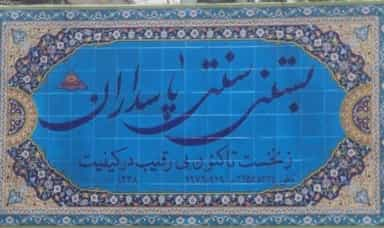 بستنی سنتی پاسداران
ز نخست تاکنون بی رقیب در کیفیت